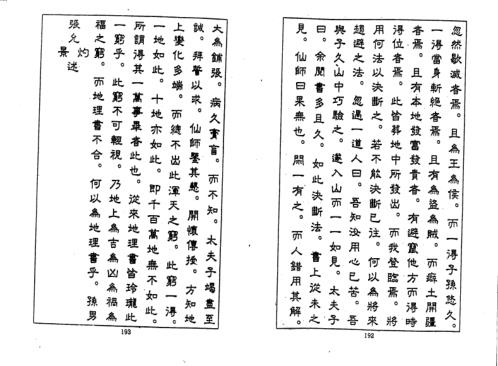 忽然歇滅者焉。且為王為侯。而一得子孫悠久。
一得當身斬絕者焉。且有為盜為賊。而癖土開疆
者焉。且有本地發富發貴者。有避竄他方而得時
得位者焉。此皆葬地中所發出。而我登臨焉。將
用何法以決斷之。若不能決斷已往。何以為將來
趨避之法。忽遇一道人曰。吾知汝用心已苦。吾
與子久山中巧驗之。遂入山而一一如見。太夫子
曰。余閱書多且久。如此決斷法。書上從未之
見。仙師曰果無也。間一有之。而人錯用其解。
192
大為鋪張。病久實盲。而不知。太夫子竭盡至
誠。拜誓以求。仙師鑒其懇。開懷傳授。方知地
上變化多端。而總不出此渾天之竅。此竅一得。
一地如此。十地亦如此。即千百萬地無不如此。
所謂得其一萬事畢者此也。從來地理書皆玲瓏此
一竅乎。此竅不可輕視。乃地上為吉為凶為禍為
福之竅。而地理書不合。何以為地理書乎。孫男
張允灼述
景
193